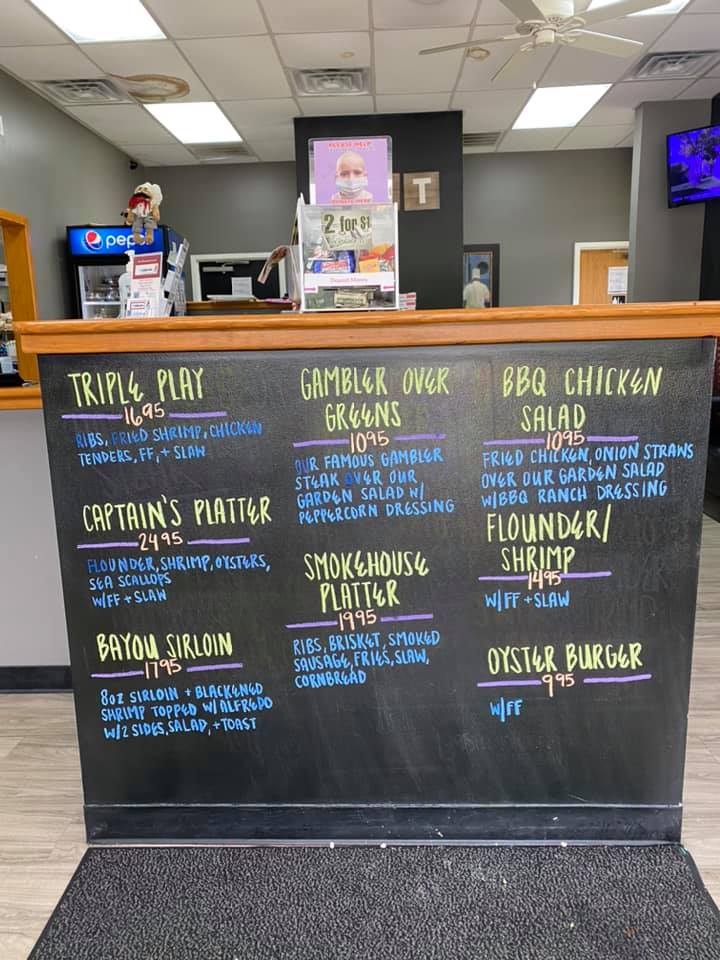 PLEASE HELP
2 for $1
T
pepsi
TRIPLE PLAY
1695
RIBS, FRIED SHRIMP, CHICKEN
TENDERS, FF, + SLAW
CAPTAIN'S PLATTER
2495
FLOUNDER, SHRIMP, OYSTERS,
SEA SCALLOPS
W/FF + SLAW
BAYOU SIRLOIN
1795
8oz SIRLOIN + BLACKENED
SHRIMP TOPPED W/ ALFREDO
W/2 SIDES, SALAD, + TOAST
GAMBLER OVER
GREENS
1095
OUR FAMOUS GAMBLER
STEAK OVER OUR
GARDEN SALAD W/
PEPPERCORN DRESSING
SMOKEHOUSE
PLATTER
1995
RIBS, BRISKET, SMOKED
SAUSAGE, FRIES, SLAW,
CORNBREAD
BBQ CHICKEN
SALAD
1095
FRIED CHICKEN, ONION STRAWS
OVER OUR GARDEN SALAD
W/BBQ RANCH DRESSING
FLOUNDER/
SHRIMP
1495
W/FF + SLAW
OYSTER BURGER
995
W/FF